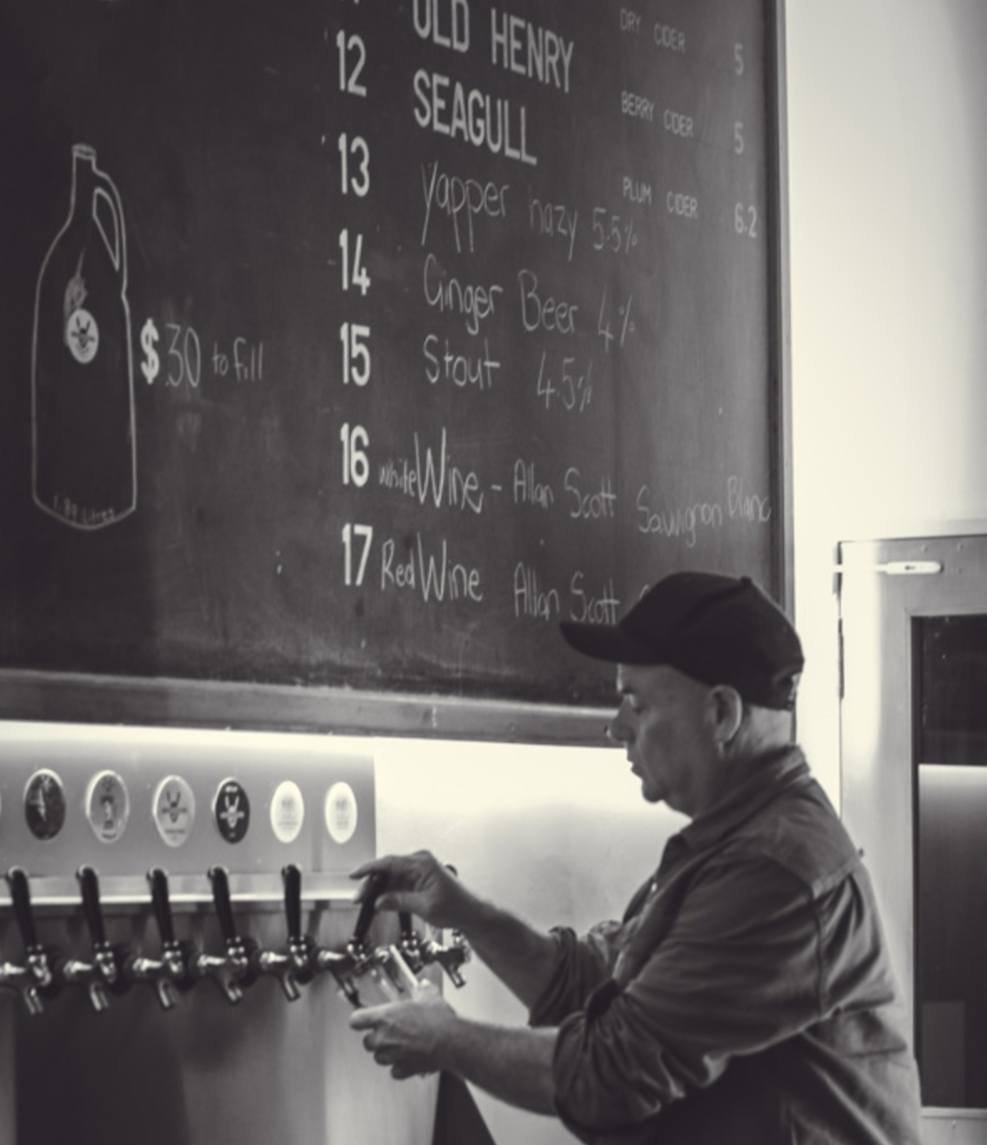 OLD HENRY
12 SEAGULL
13 Yapper hazy 5.5%
14 Ginger Beer 4%
15 Stout 4.5%
16 white Wine - Allan Scott Sauvignon Blanc
17 Red Wine Allan Scott
DRY CIDER 5
BERRY CIDER 5
PLUM CIDER 6.2
$30 to fill
1.89 Litres